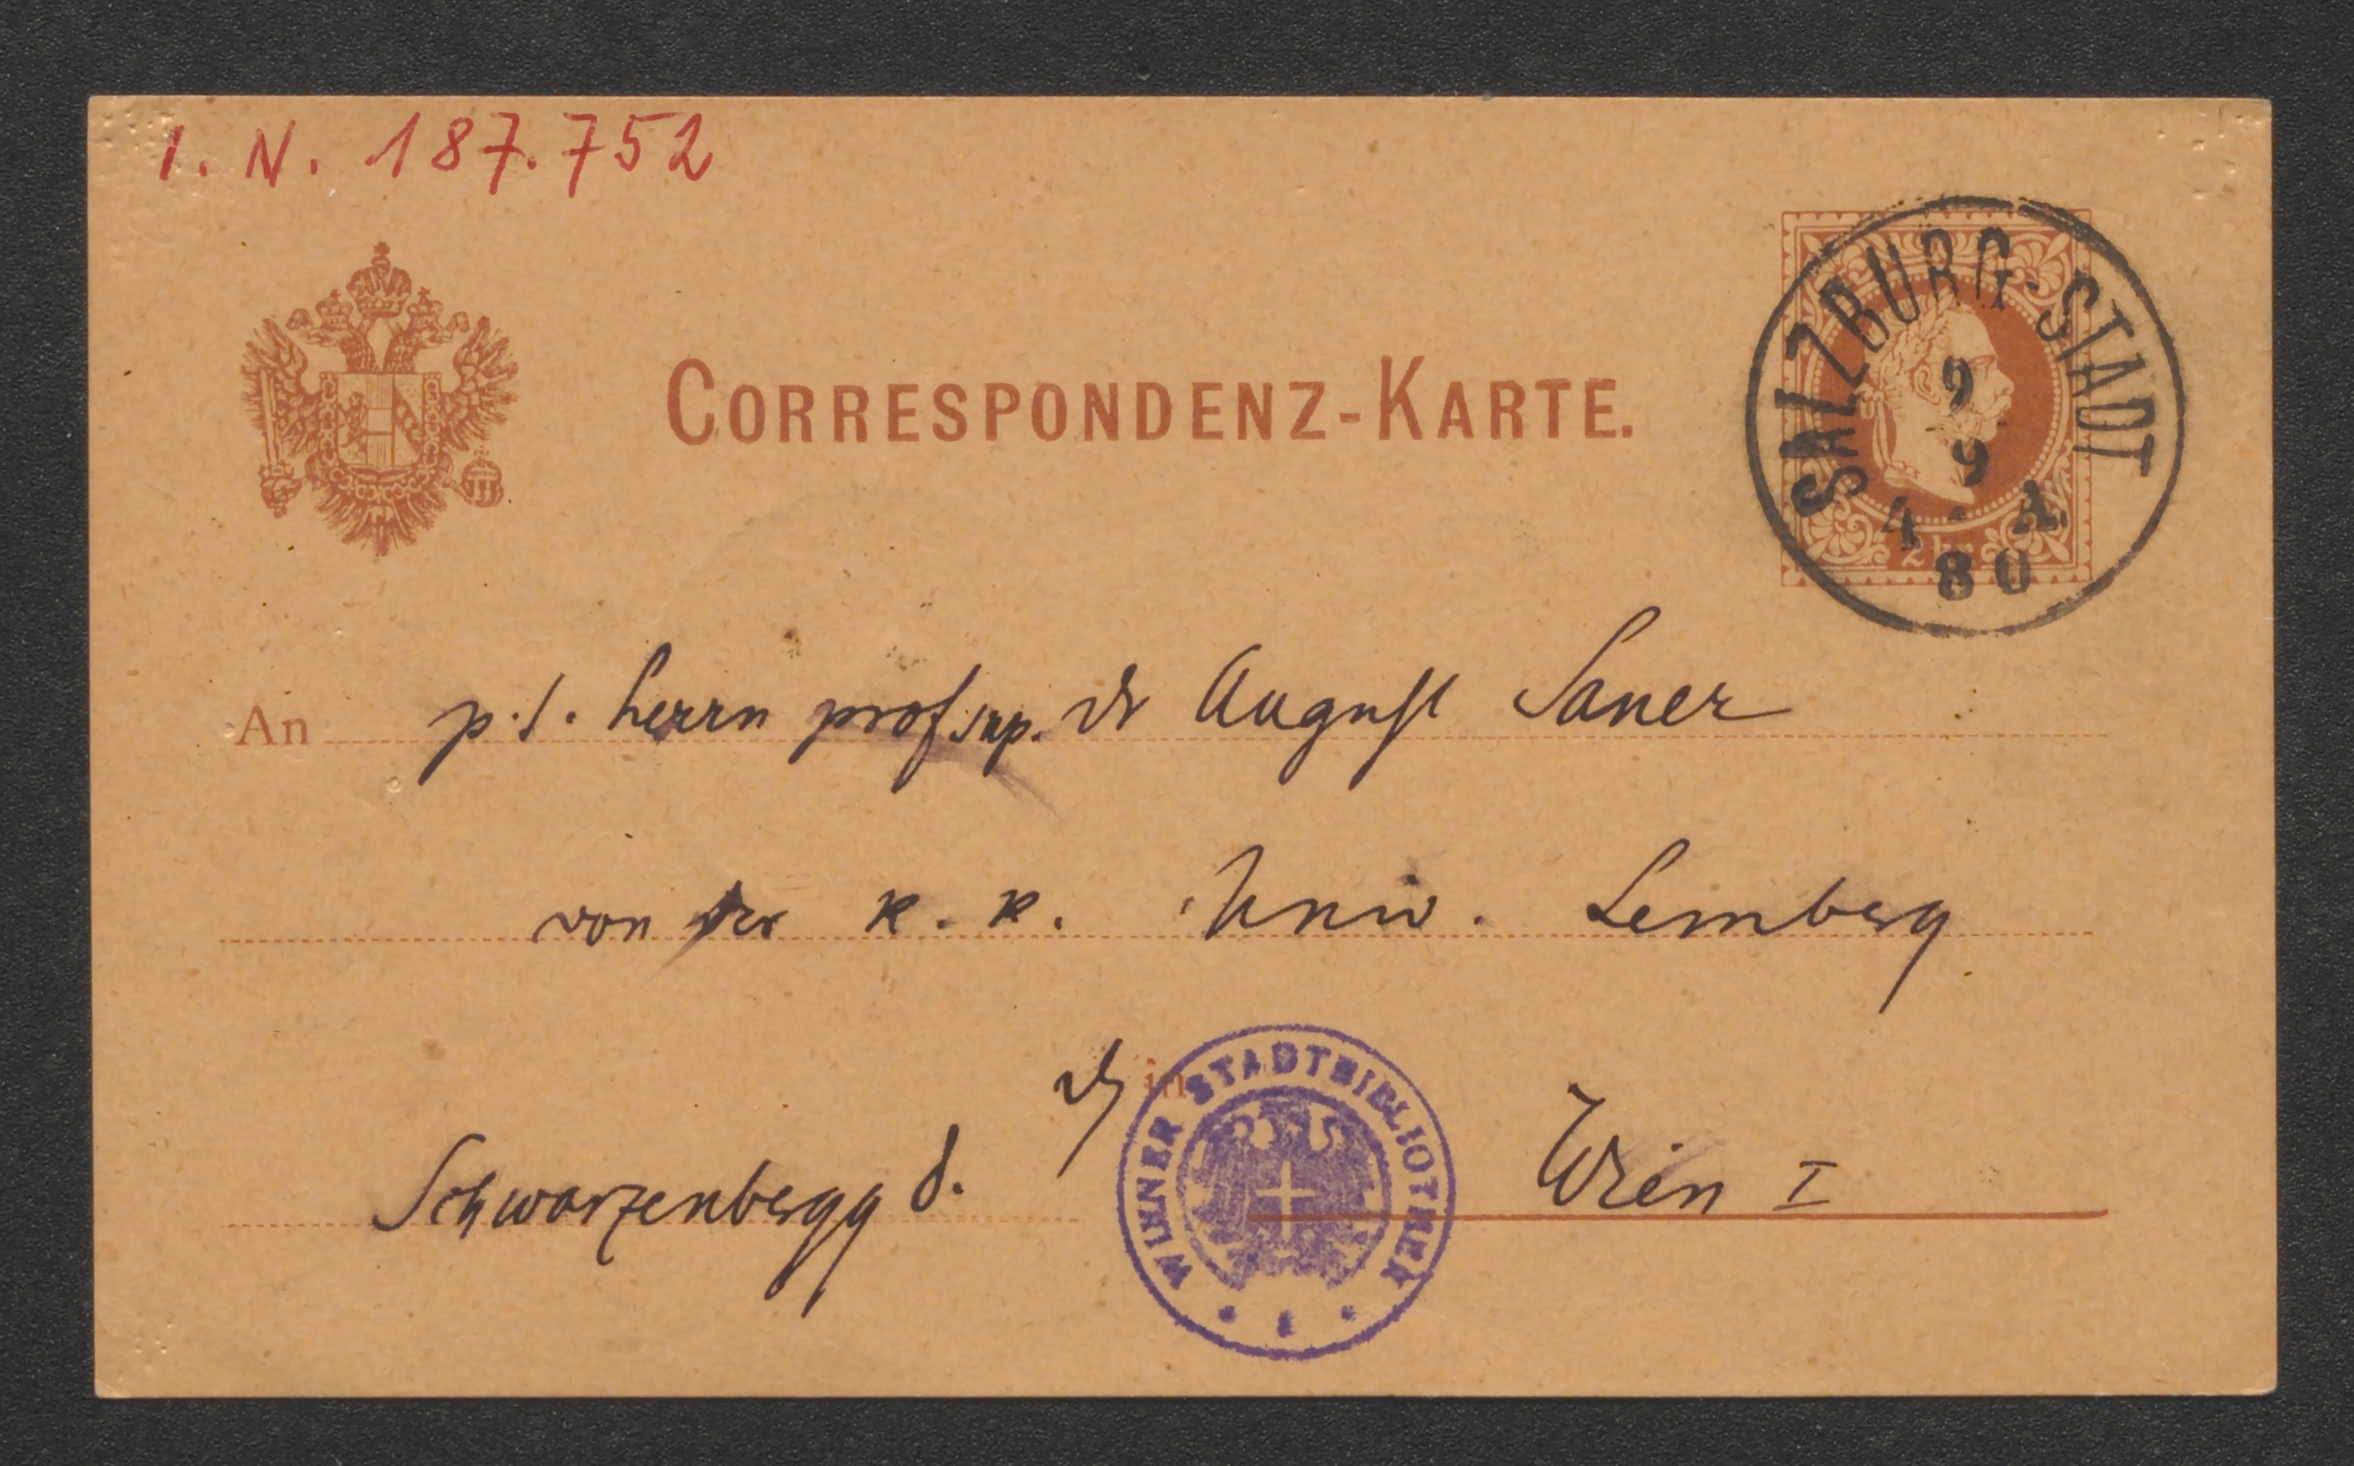 I. N. 187.752
CORRESPONDENZ-KARTE.
SALZBURG-STADT
9
9
4 A.
80
2 kr.
An p. t. herrn prof. sup. dr August Sauer
von der k. k. Univ. Lemberg
in
Schwarzenbergg 8. Wien I
WIENER STADTBIBLIOTHEK